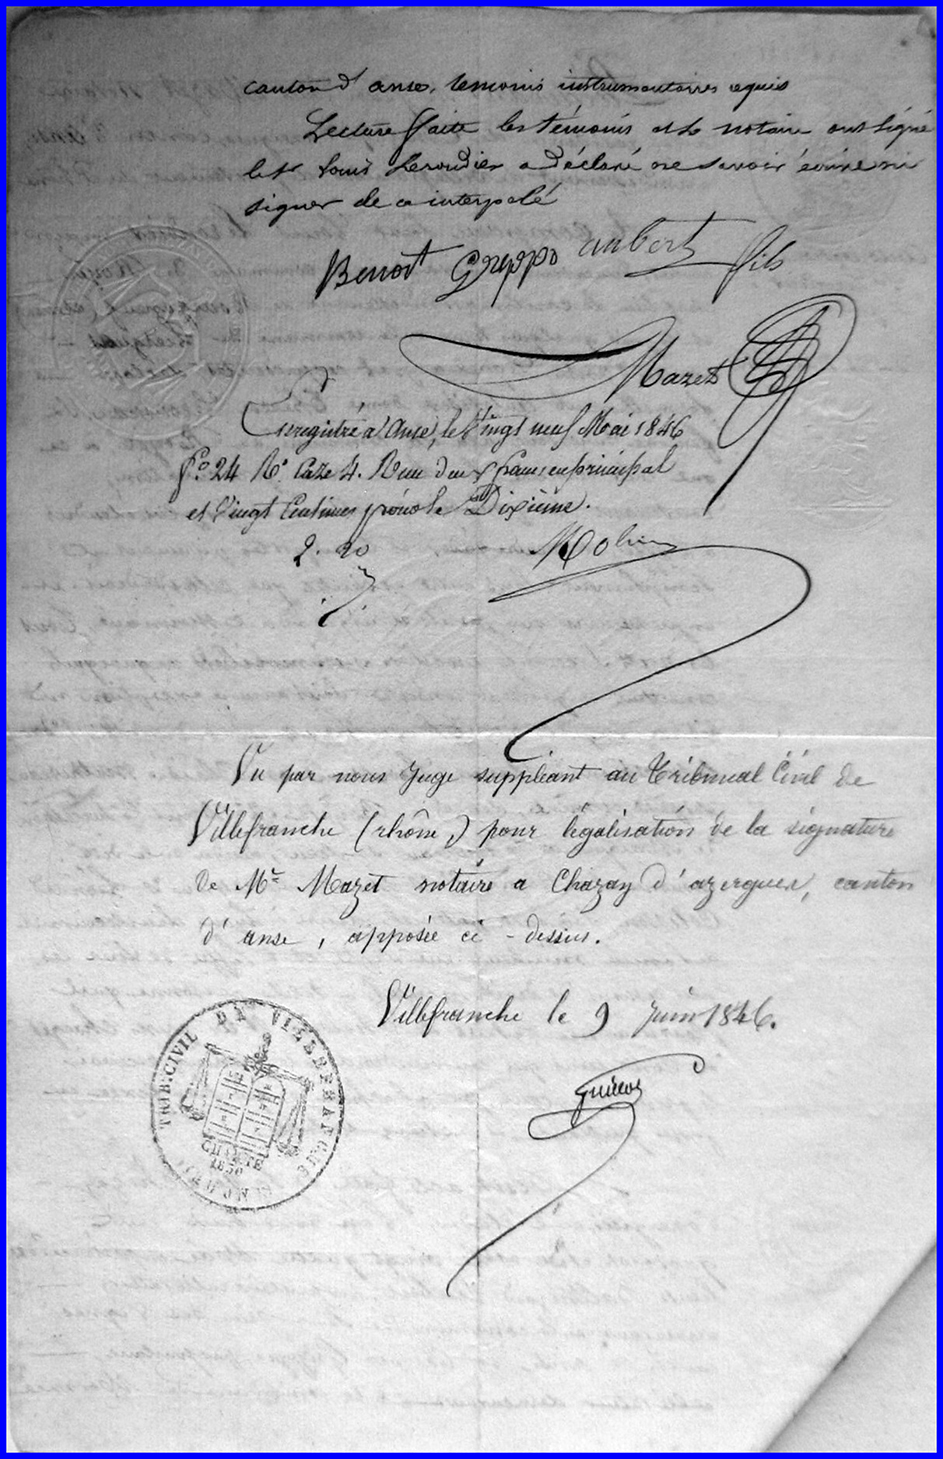 canton d'anse, témoins instrumentaires requis
Lecture faite les témoins et le notaire ont signé
le sr Louis Leroudier a déclaré ne savoir écrire ni
signer de ce interpelé
Benoit Greppo aubert fils
Mazet
Enregistré à Anse, le Vingt neuf Mai 1846
f° 24 R° Caze 4. Reçu deux francs en principal
et Vingt Centimes pour le Dixième.
2. 20
Molin
Vu par nous Juge suppléant au Tribunal Civil de
Villefranche (rhône,) pour légalisation de la signature
de Me Mazet notaire a Chazay d'azergues, canton
d'anse, apposée ci-dessus.
Villefranche le 9 Juin 1846.
TRIB. CIVIL DE VILLEFRANCHE
CHARTE
1830